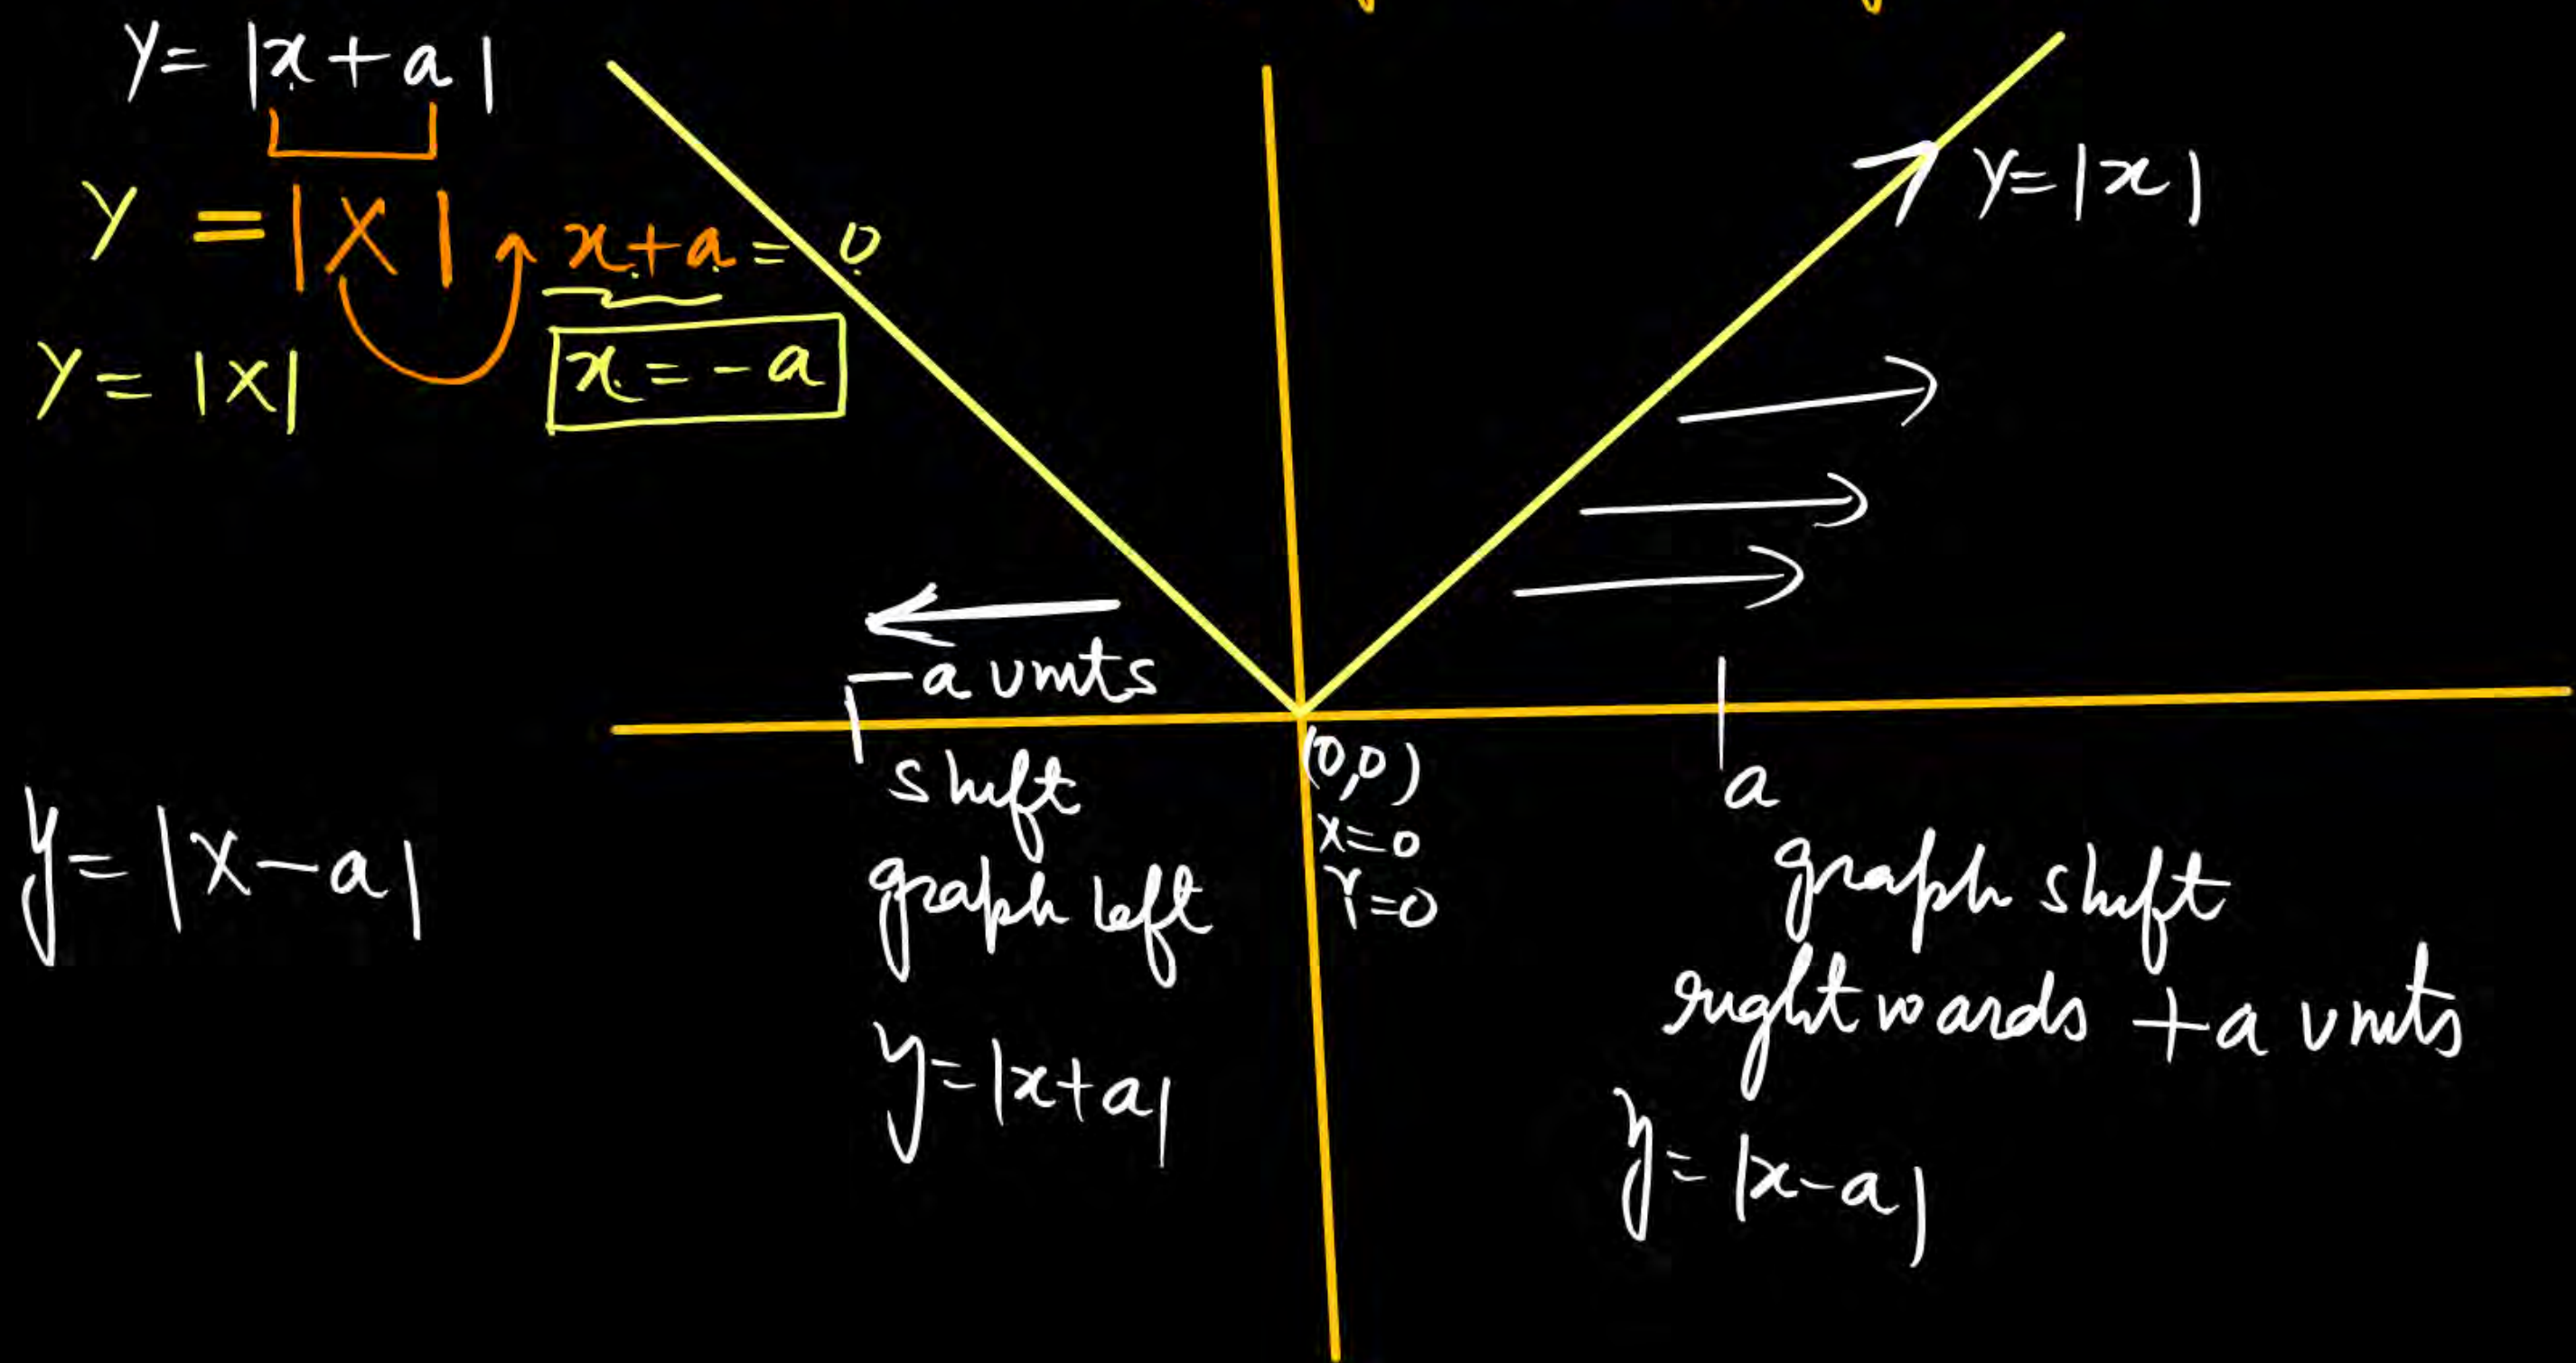 y = |x + a|
y = |X| x + a = 0
y = |X| x = - a
y = |x|
- a units
shift
graph left
y = |x + a|
(0,0)
x = 0
Y = 0
a
graph shift
rightwards + a units
y = |x - a|
y = |x - a|